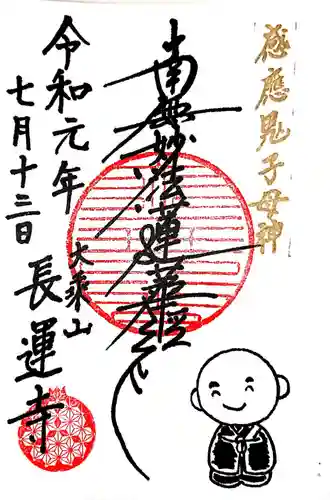 感應鬼子母神
南無妙法蓮華経
令和元年
七月十三日
大乘山
長運寺